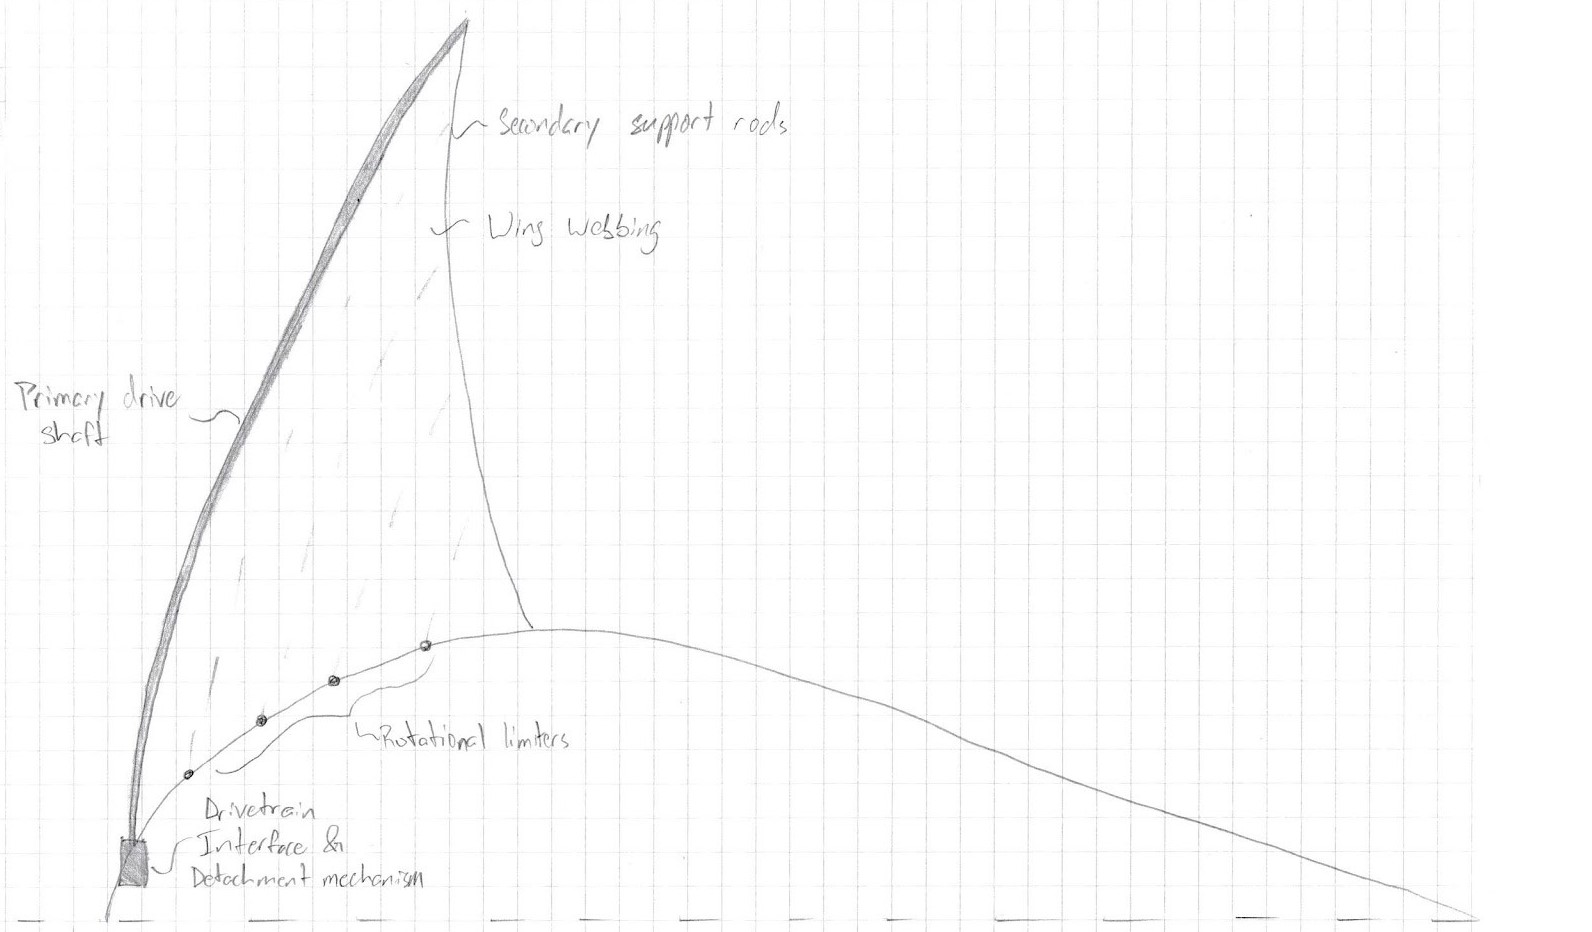 Secondary support rods
Wing webbing
Primary drive
shaft
Rotational limiters
Drivetrain
Interface &
Detachment mechanism